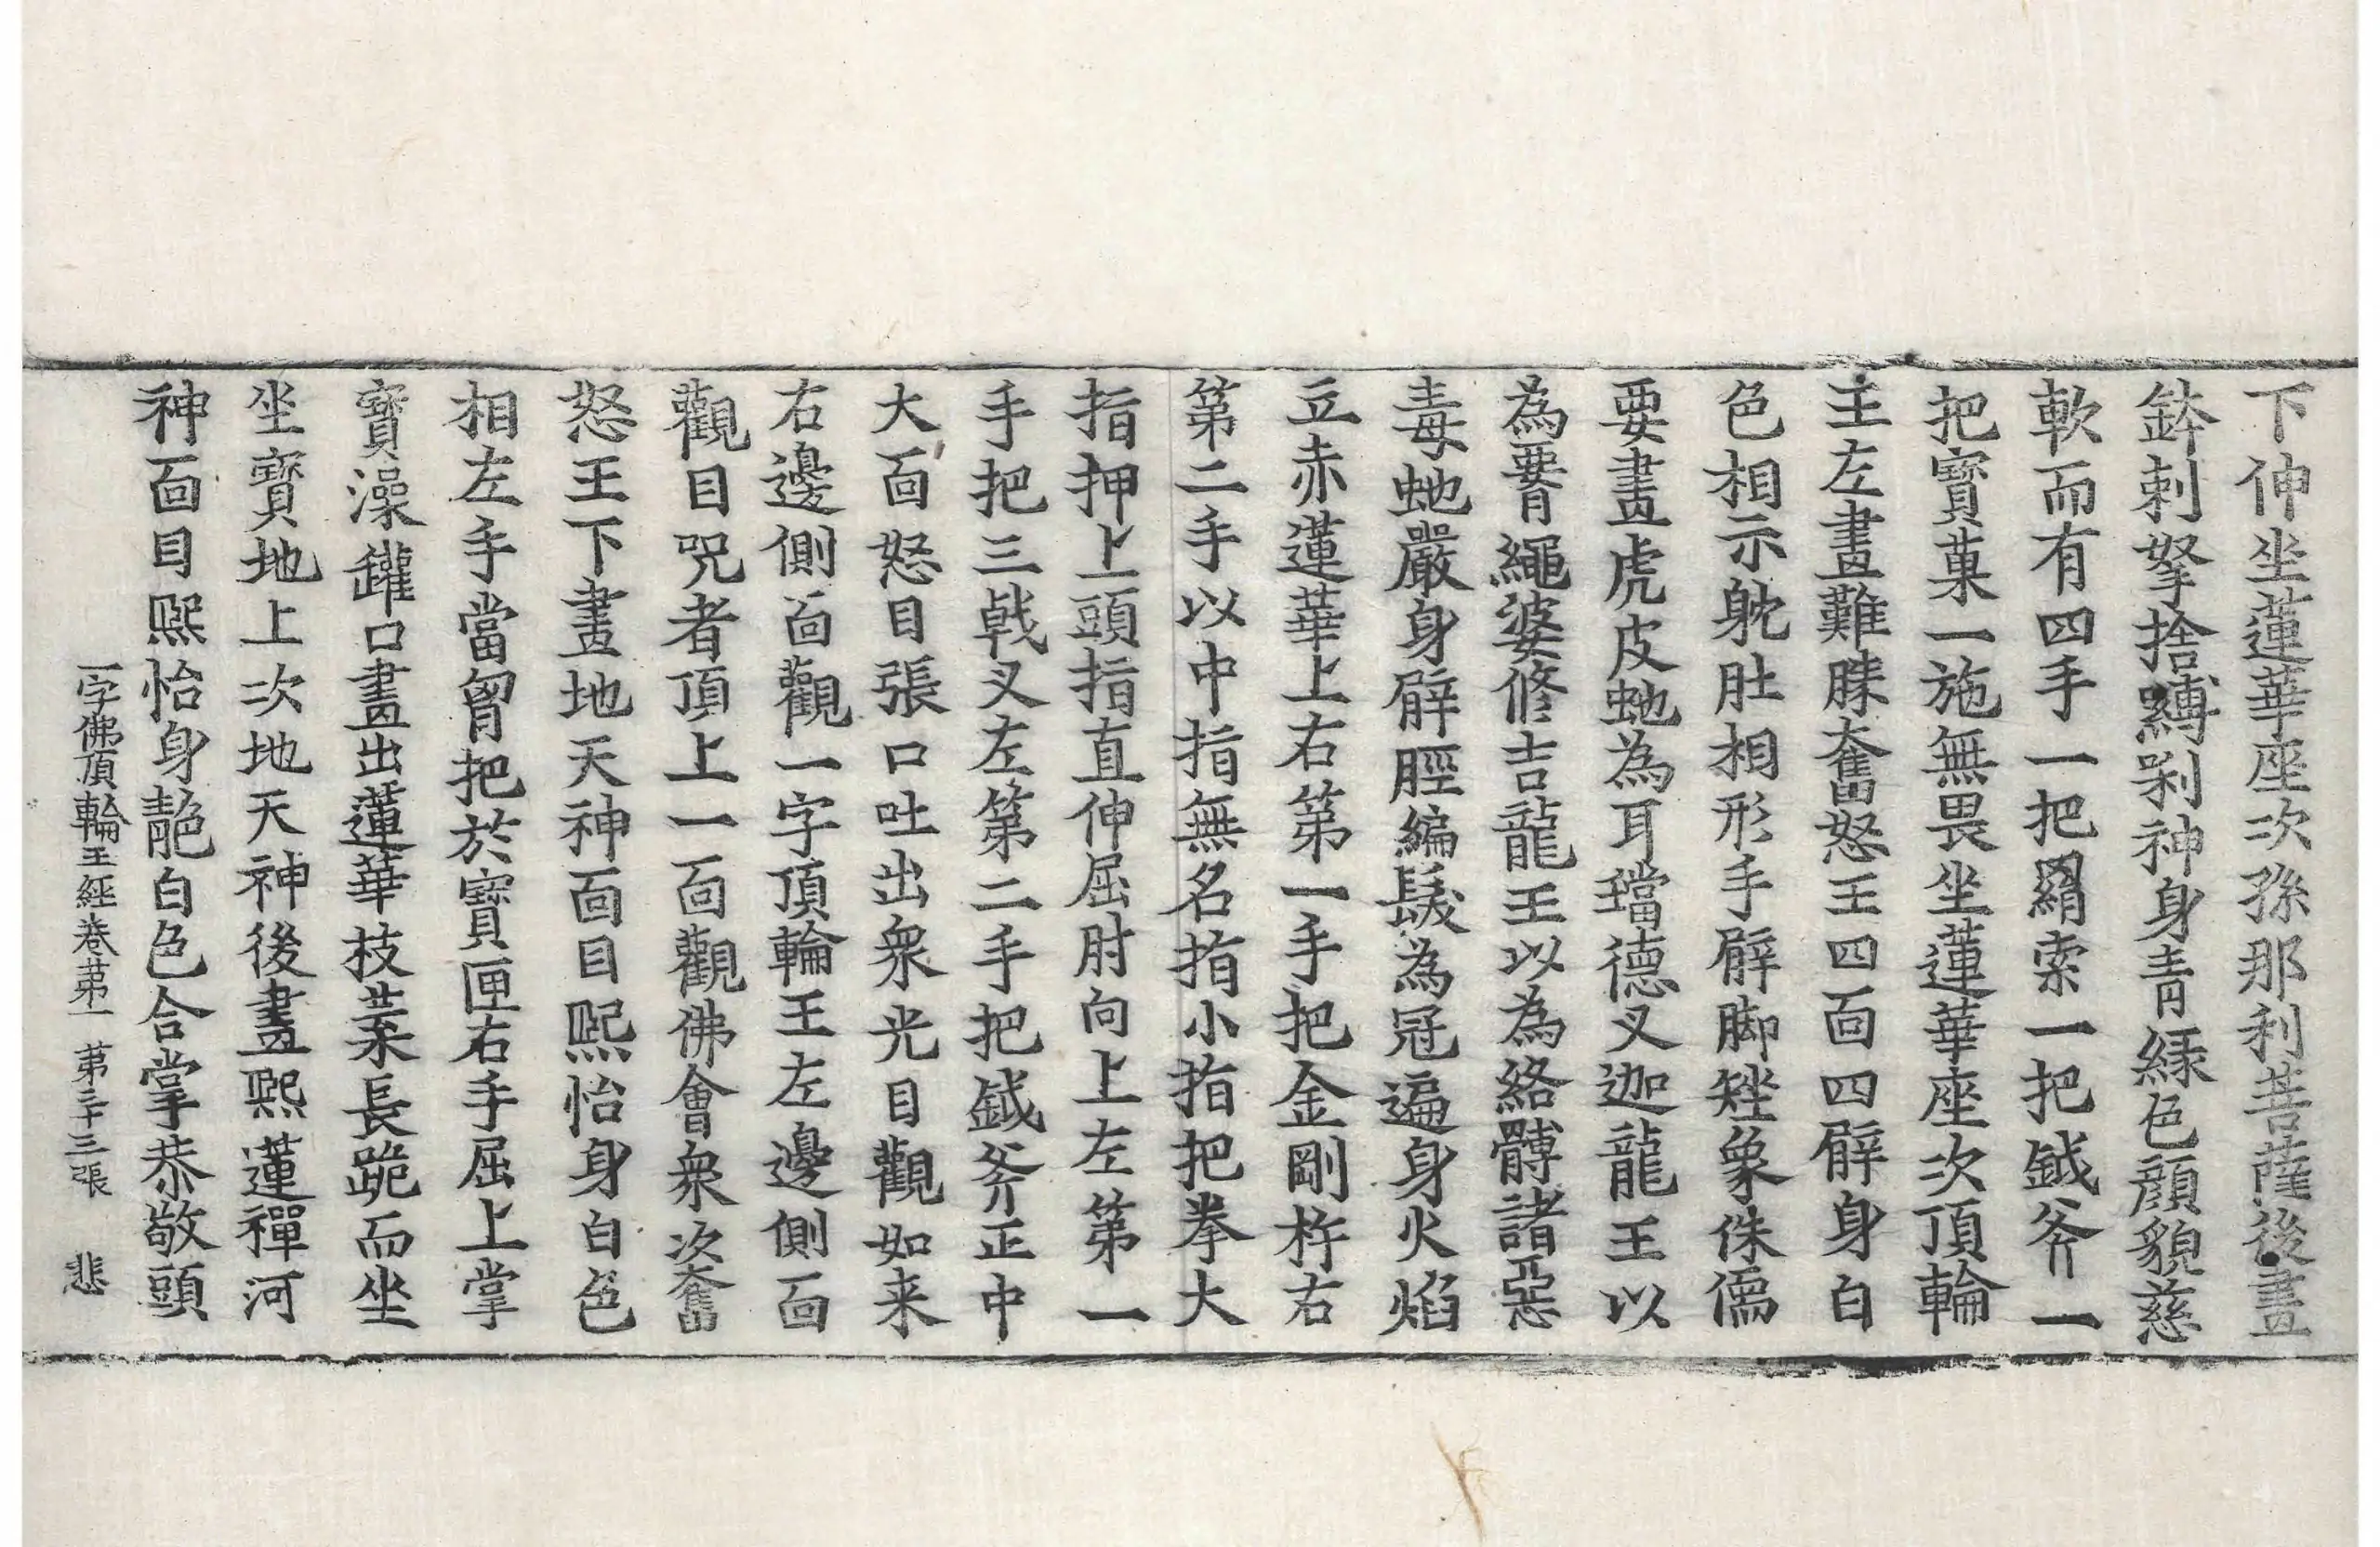 下伸坐蓮華座次孫那利菩薩後畫
鉢剌拏捨嚩剁神身青緑色顔貌慈
軟而有四手一把羂索一把鉞斧一
把寶菓一施無畏坐蓮華座次頂輪
王左畫難勝奮怒王四面四臂身白
色相示躭肚相形手臂脚矬象侏儒
要畫虎皮虵為耳璫德叉迦龍王以
為𦝫繩婆修吉龍王以為絡髆諸惡
毒虵嚴身臂脛編髮為冠遍身火焰
立赤蓮華上右第一手把金剛杵右
第二手以中指無名指小指把拳大
指押上頭指直伸屈肘向上左第一
手把三戟叉左第二手把鉞斧正中
大面怒目張口吐出衆光目觀如来
右邊側面觀一字頂輪王左邊側面
觀目咒者頂上一面觀佛會衆次奮
怒王下畫地天神面目熈怡身白色
相左手當胷把於寶匣右手屈上掌
寶澡鑵口畫出蓮華枝葉長跪而坐
坐寶地上次地天神後畫熈蓮禪河
神面目熈怡身靘白色合掌恭敬頭
一字佛頂輪王經卷第一 第三十三張 悲